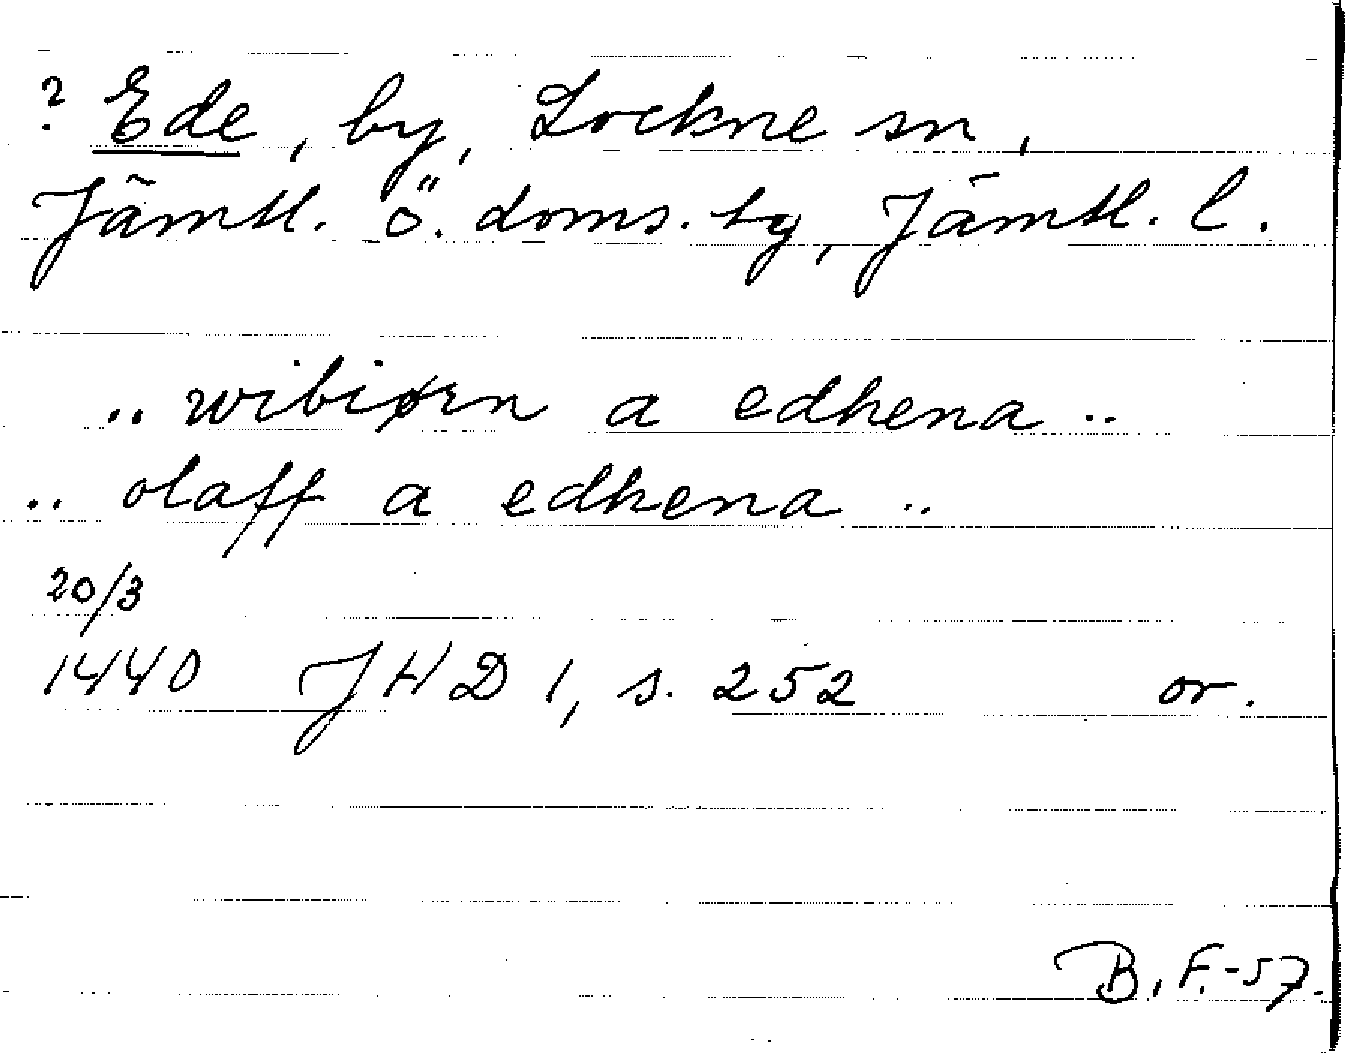 ? Ede, by, Lockne sn,
Jämtl. ö. doms. hg, Jämtl. l.
.. wibiørn a edhena ..
.. olaff a edhena ..
20/3
1440 JHD 1, s. 252 or.
B. F.-57.